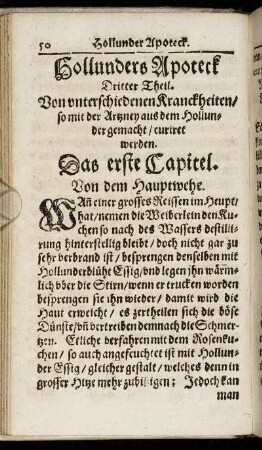 50 Hollunder Apoteck.
Hollunders Apoteck
Dritter Theil.
Von vnterschiedenen Kranckheiten/
so mit der Artzney aus dem Hollun-
der gemacht/ curiret
werden.
Das erste Capitel.
Von dem Hauptwehe.
WAñ einer grosses Reissen im Heupt
hat/ nemen die Weiberlein den Ku-
chen so nach des Wassers destilli-
rung hinterstellig bleibt/ doch nicht gar zu
sehr verbrand ist/ besprengen denselben mit
Hollunderblüht Essig/ vnd legen ihn wärm-
lich vber die Stirn/ wenn er trucken worden
besprengen sie ihn wieder/ damit wird die
Haut erweicht/ es zertheilen sich die böse
Dünste/ vñ vertreiben demnach die Schmer-
tzen. Etliche verfahren mit dem Rosenku-
chen/ so auch angefeuchtet ist mit Hollun-
der Essig/ gleicher gestalt/ welches denn in
grosser Hitze mehr zubilligen: Jedoch kan
man